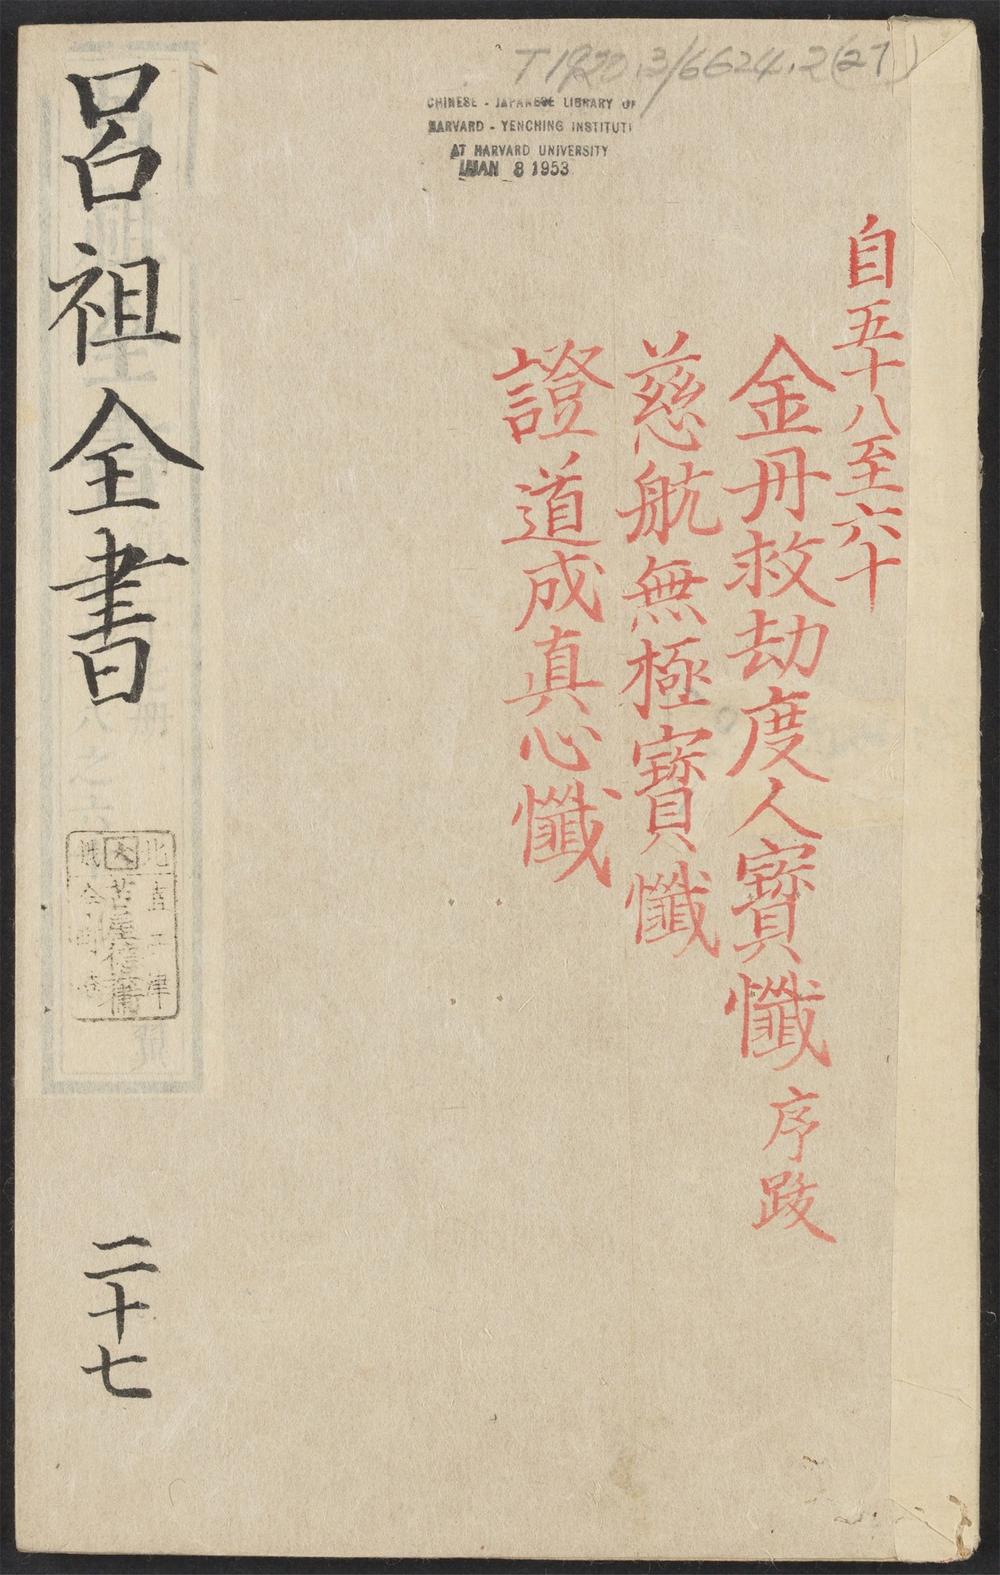 T1920.3/6624.2(27)
CHINESE - JAPANESE LIBRARY OF
HARVARD - YENCHING INSTITUTE
AT HARVARD UNIVERSITY
JAN 8 1953
自五十八至六十
金丹救劫度人寶懺序跋
慈航無極寶懺
證道成真心懺
呂祖全書
二十七